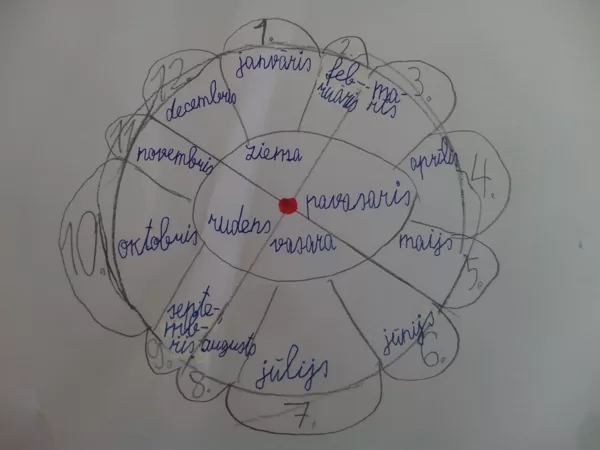 1.
janvāris
2.
feb-
ruāris
3.
ma-
rts
4.
aprīlis
5.
maijs
6.
jūnijs
7.
jūlijs
8.
augusts
9.
septe-
mb-
ris
10.
oktobris
11.
novembris
12.
decembris
ziema
pavasaris
vasara
rudens